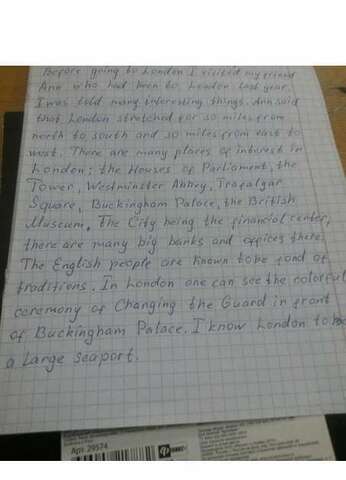 Before going to London I visited my friend
Ann who had been to London last year.
I was told many interesting things. Ann said
that London stretched for 30 miles from
north to south and 30 miles from east to
west. There are many places of interest in
London: the Houses of Parliament, the
Tower, Westminster Abbey, Trafalgar
Square, Buckingham Palace, the British
Museum. The City being the financial center,
there are many big banks and offices there.
The English people are known to be fond of
traditions. In London one can see the colorful
ceremony of Changing the Guard in front
of Buckingham Palace. I know London to be
a large seaport.
Арт. 29574